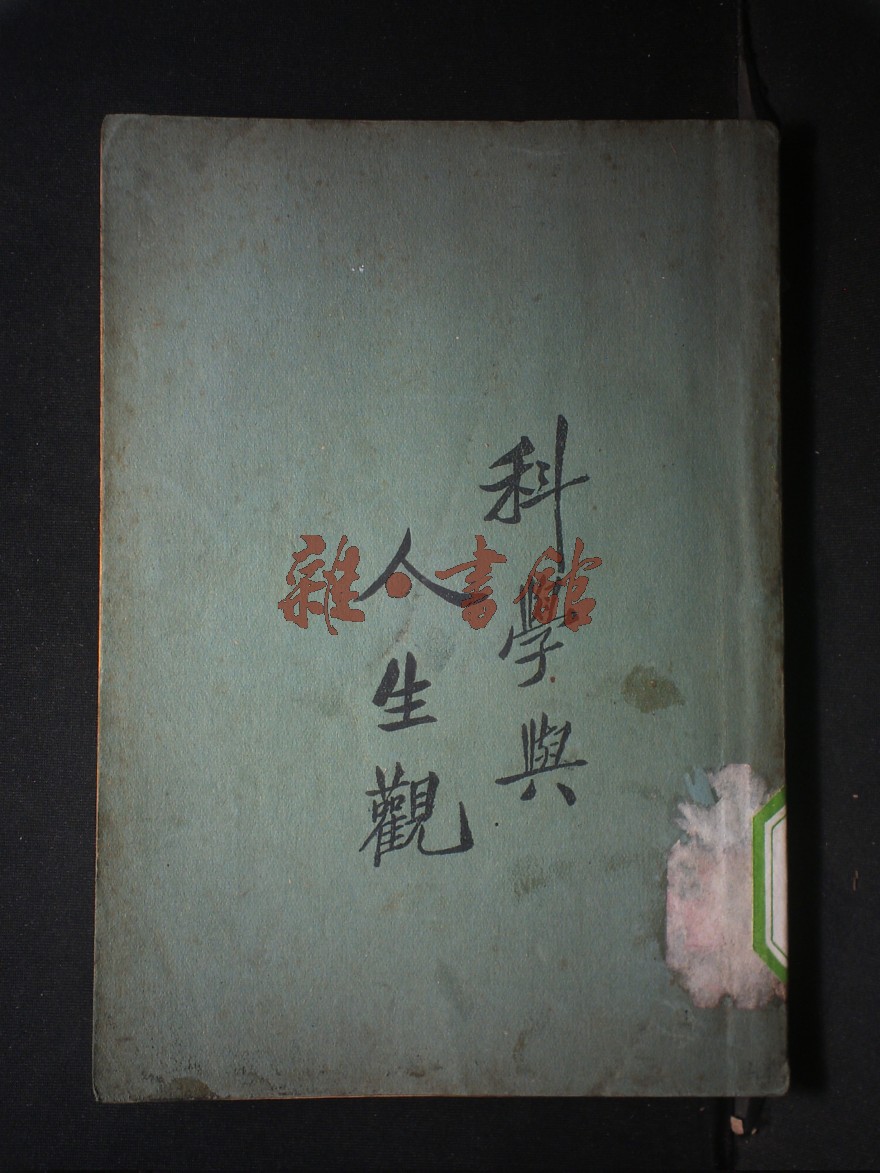 科學與
人生觀
雜·書館